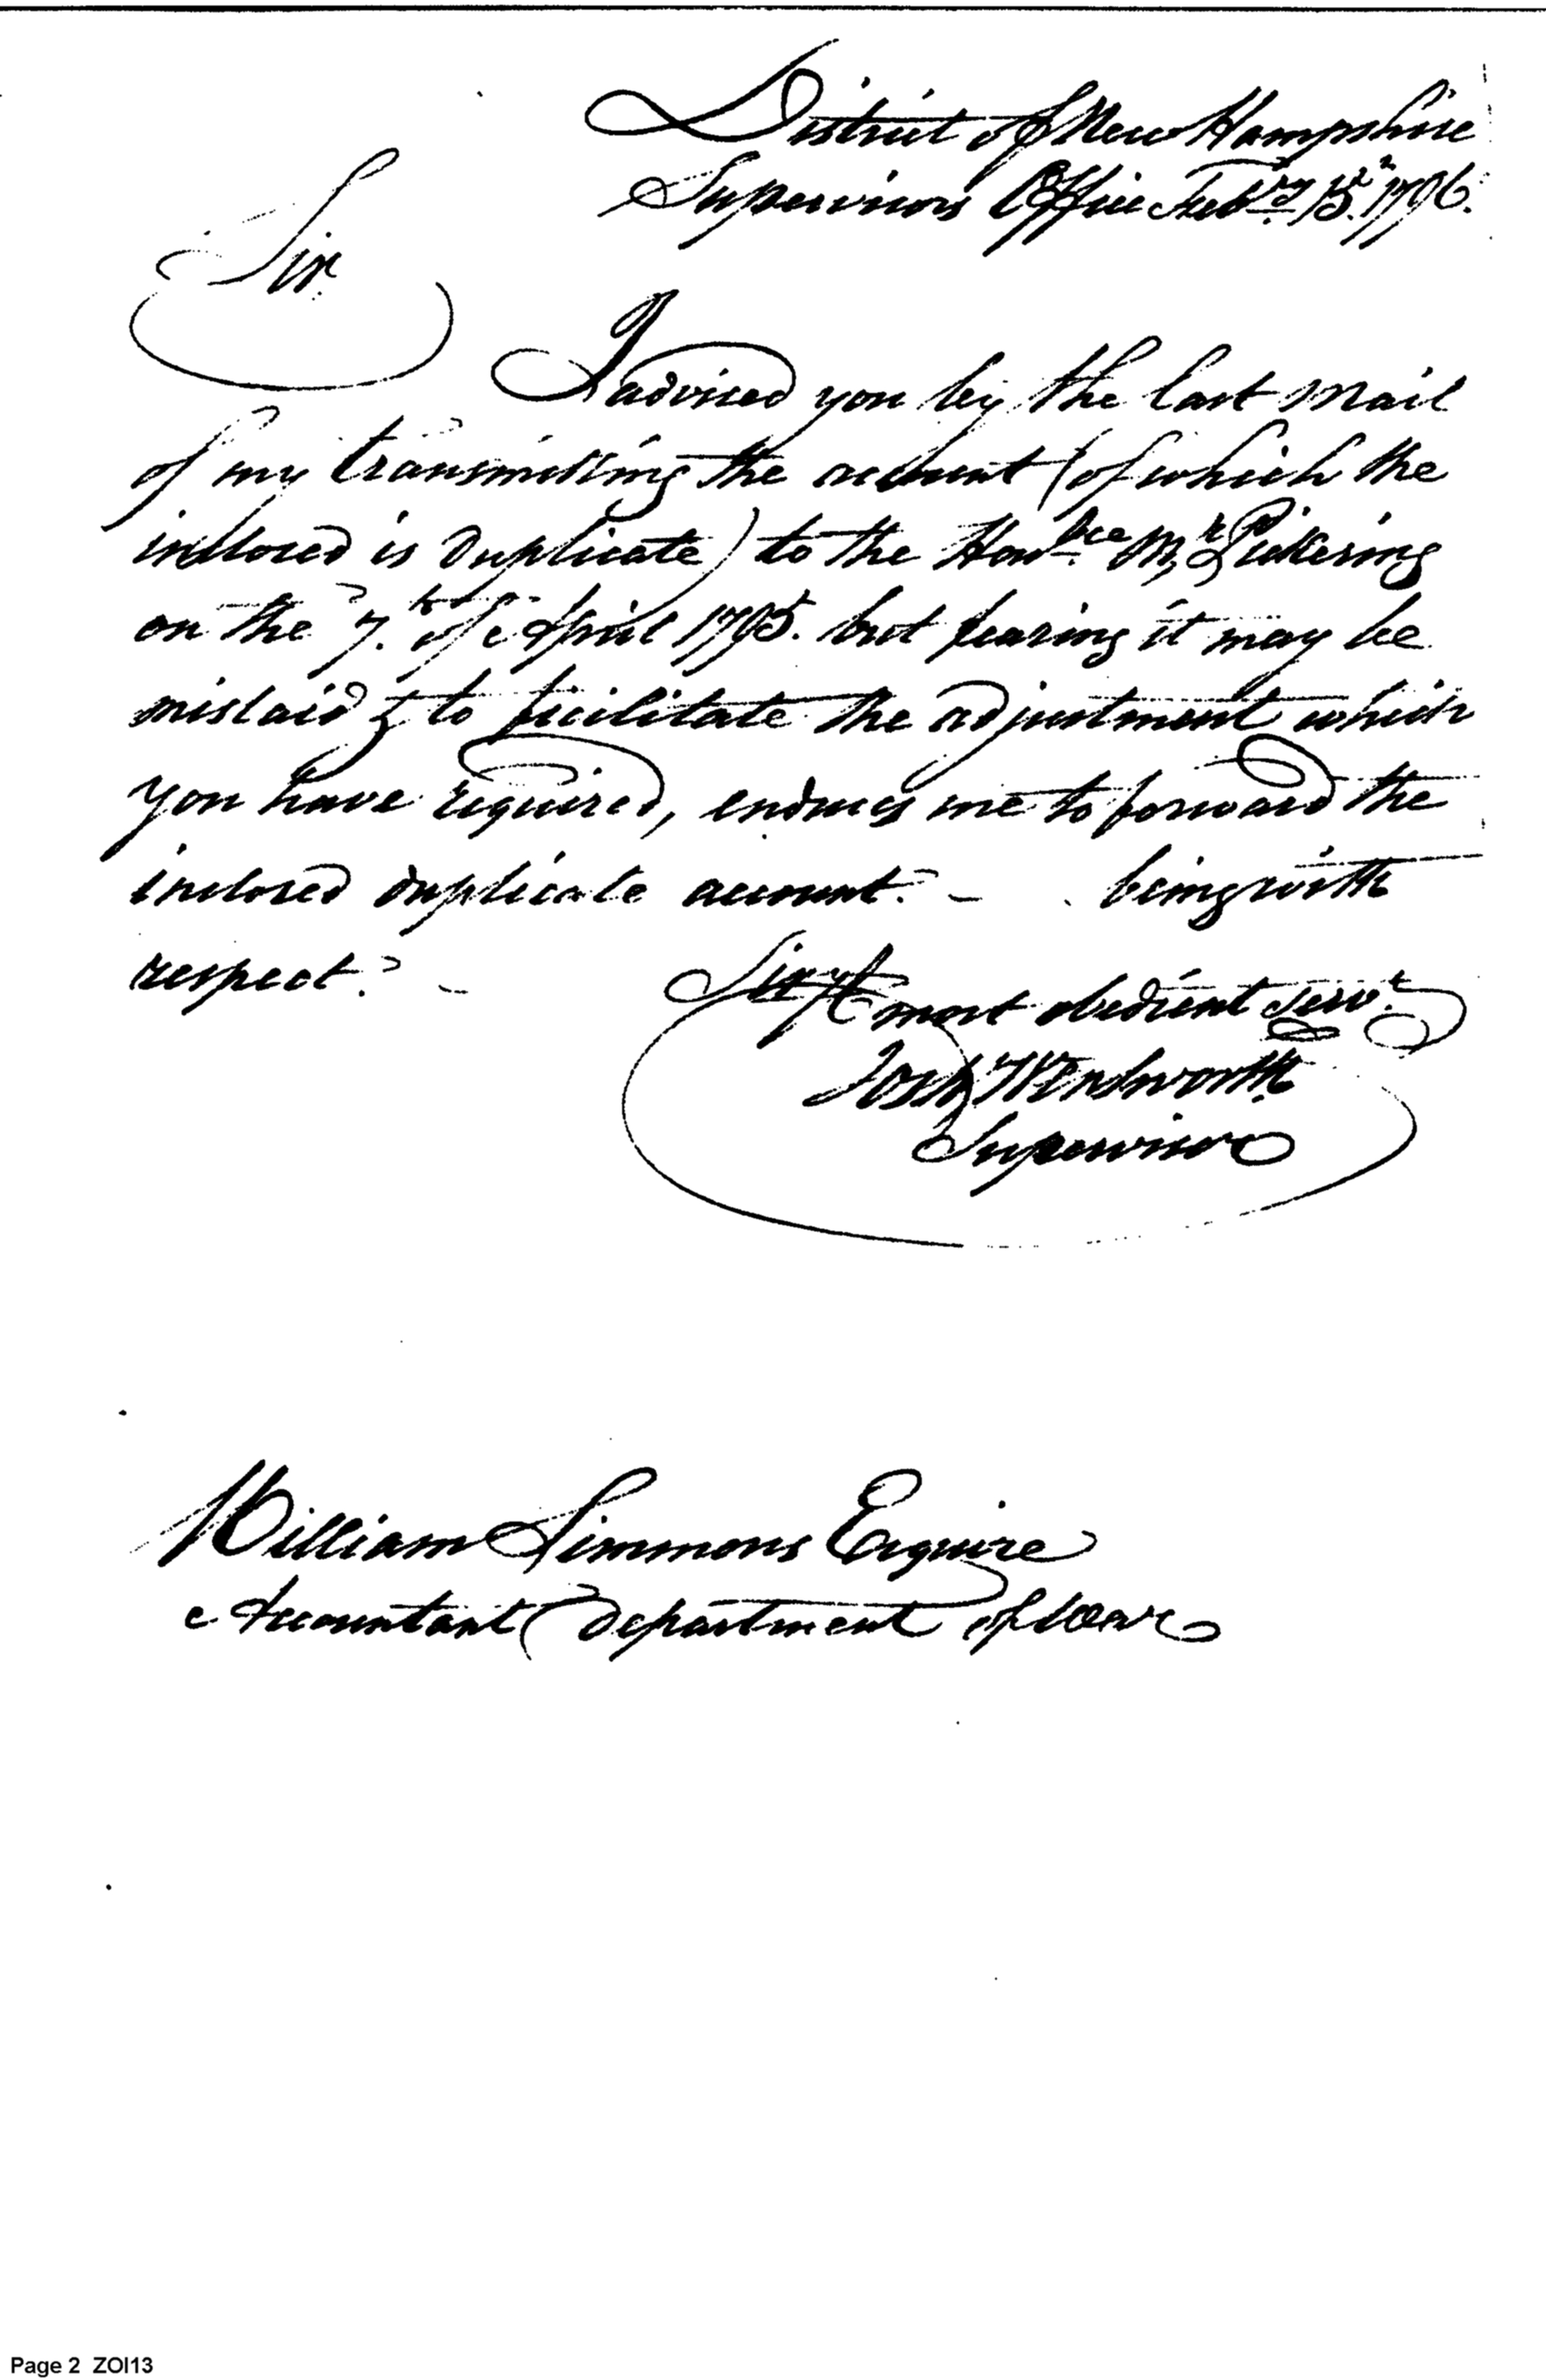 District of New Hampshire
Supervisors Office Feb.ry 15.th 1796.
Sir.
I advised you by the last mail
of my transmitting the account (of which the
inclosed is Duplicate) to the Hon.ble Mr. Pickering
on the 7.th of April 1795. but fearing it may be
mislaid & to facilitate the adjustment which
you have required, enduces me to forward the
inclosed duplicate account. – being with
respect. –
Sir Yr. most obedient serv.t
Josh. Wentworth
Supervisor
William Simmons Esquire
Accountant Department of War
Page 2 ZOI13